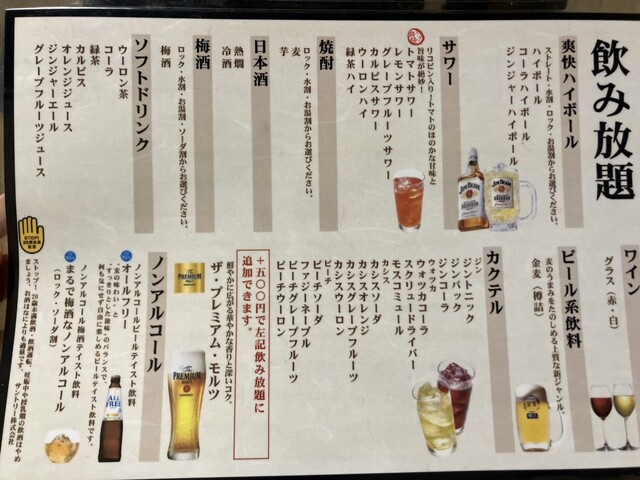 飲み放題
爽快ハイボール
ストレート・水割・ロック・お湯割からお選びください。
ハイボール
コーラハイボール
ジンジャーハイボール
サワー
リコピン入り!トマトのほのかな甘味と
旨味が絶妙!
トマトサワー
レモンサワー
グレープフルーツサワー
カルピスサワー
ウーロンハイ
緑茶ハイ
焼酎
ロック・水割・お湯割からお選びください。
麦
芋
日本酒
熱燗
冷酒
梅酒
ロック・水割・お湯割・ソーダ割からお選びください。
梅酒
ソフトドリンク
ウーロン茶
コーラ
緑茶
カルピス
オレンジジュース
ジンジャーエール
グレープフルーツジュース
ワイン
グラス(赤・白)
ビール系飲料
麦のうまみをたのしめる上質な新ジャンル。
金麦(樽詰)
カクテル
ジン
ジントニック
ジンバック
ジンコーラ
ウォッカ
ウォッカコーラ
スクリュードライバー
モスコミュール
カシス
カシスソーダ
カシスオレンジ
カシスグレープフルーツ
カシスウーロン
ピーチ
ピーチソーダ
ファジーネーブル
ピーチグレープフルーツ
ピーチウーロン
+五〇〇円で左記飲み放題に
追加できます。
鮮やかに広がる華やかな香りと深いコク。
ザ・プレミアム・モルツ
ノンアルコール
ノンアルコールビールテイスト飲料
オールフリー
「麦の味わい」と
「すっきりとした後味」のバランスで、
何も気にせず自由に楽しめるビールテイスト飲料です。
ノンアルコール梅酒テイスト飲料
まるで梅酒なノンアルコール
(ロック・ソーダ割)
STOP!
ストップ!20歳未満飲酒・飲酒運転。妊娠中や授乳期の飲酒はやめ
ましょう。お酒はなによりも適量です。サントリー株式会社
JIM BEAM
BOURBON
The
PREMIUM
MALT'S
ALL-FREE